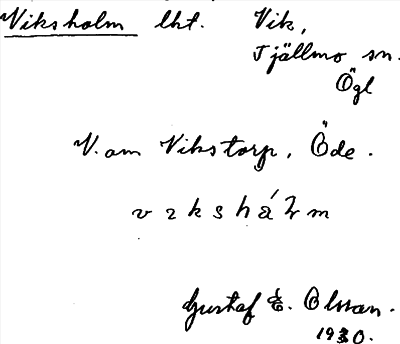 Viksholm lht. Vik,
Tjällmo sn.
Ögl
V. om Vikstorp, Öde.
v ɿ k s h ǻ ɫ m
Gustaf E. Olsson.
1930.